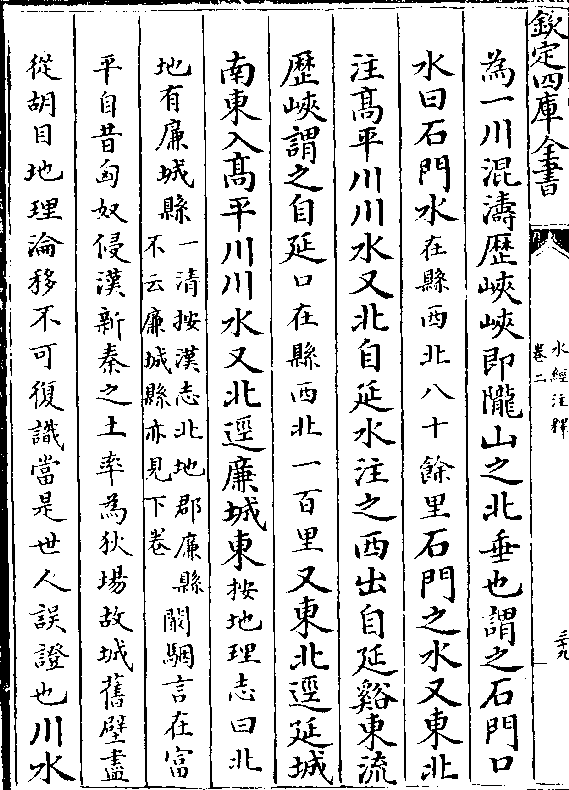 欽定四庫全書
水經注釋
卷二
三九
為一川混濤歴峽峽即隴山之北垂也謂之石門口
水曰石門水在縣西北八十餘里石門之水又東北
注髙平川川水又北自延水注之西出自延谿東流
歴峽謂之自延口在縣西北一百里又東北逕延城
南東入髙平川川水又北逕廉城東按地理志曰北
地有廉城縣一清按漢志北地郡廉縣不云廉城縣亦見下卷闞駰言在富
平自昔匈奴侵漢新秦之土率為狄場故城舊壁盡
從胡目地理淪移不可復識當是世人誤證也川水